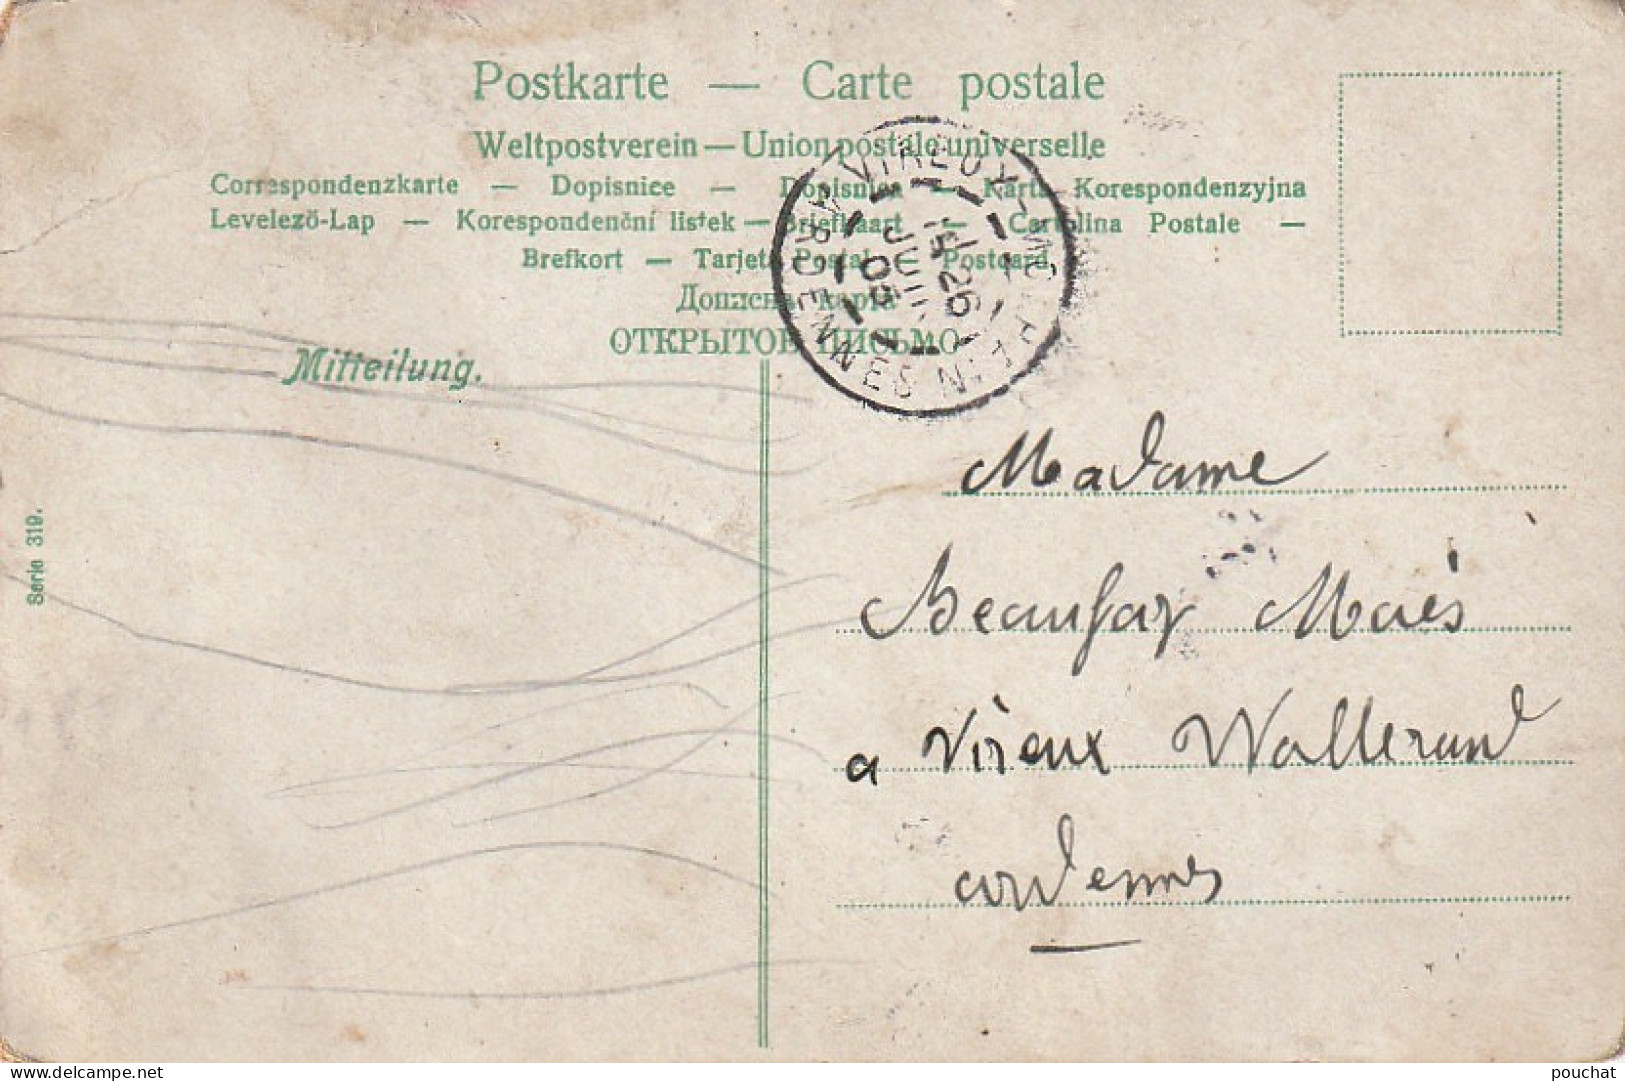 Postkarte — Carte postale
Weltpostverein — Union postale universelle
Correspondenzkarte — Dopisnice — Dopisnica — Karta Korespondenzyjna
Levelező-Lap — Korespondenční lístek — Briefkaart — Cartolina Postale —
Brefkort — Tarjeta Postal — Postcard
Дописна карта
ОТКРЫТОЕ ПИСЬМО
Mitteilung.
VIREUX-MOLHAIN ARDENNES
15
26
JUIL
05
Serie 319.
Madame
Beaufay Maès
a Vireux Wallerand
ardennes
pouchat
delcampe.net